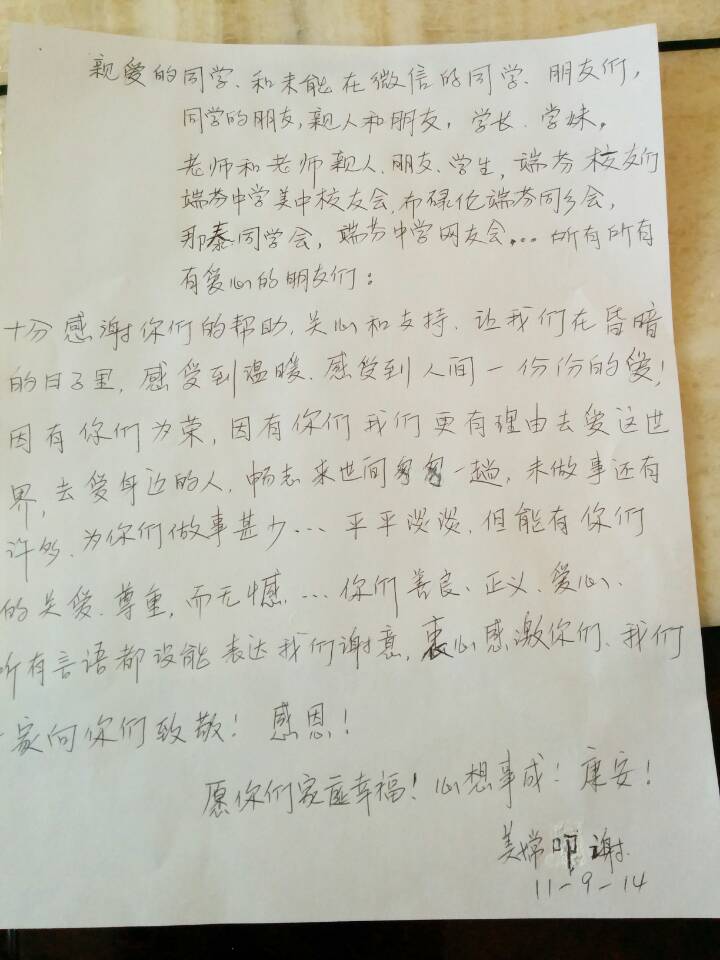 亲爱的同学、和未能在微信的同学、朋友们,
同学的朋友,亲人和朋友,学长、学妹,
老师和老师亲人、朋友、学生,端芬校友们
端芬中学美中校友会,布碌伦端芬同乡会,
那泰同学会,端芬中学网友会……所有所有
有爱心的朋友们:
十分感谢你们的帮助,关心和支持,让我们在昏暗
的日子里,感受到温暖、感受到人间一份份的爱!
因有你们为荣,因有你们我们更有理由去爱这世
界,去爱身边的人,畅志来世间匆匆一趟,未做事还有
许多,为你们做事甚少…平平淡淡,但能有你们
的关爱、尊重,而无憾…你们善良、正义、爱心、
所有言语都没能表达我们谢意,衷心感激你们、我们
一家向你们致敬!感恩!
愿你们家庭幸福!心想事成!康安!
美嫦叩谢
11-9-14